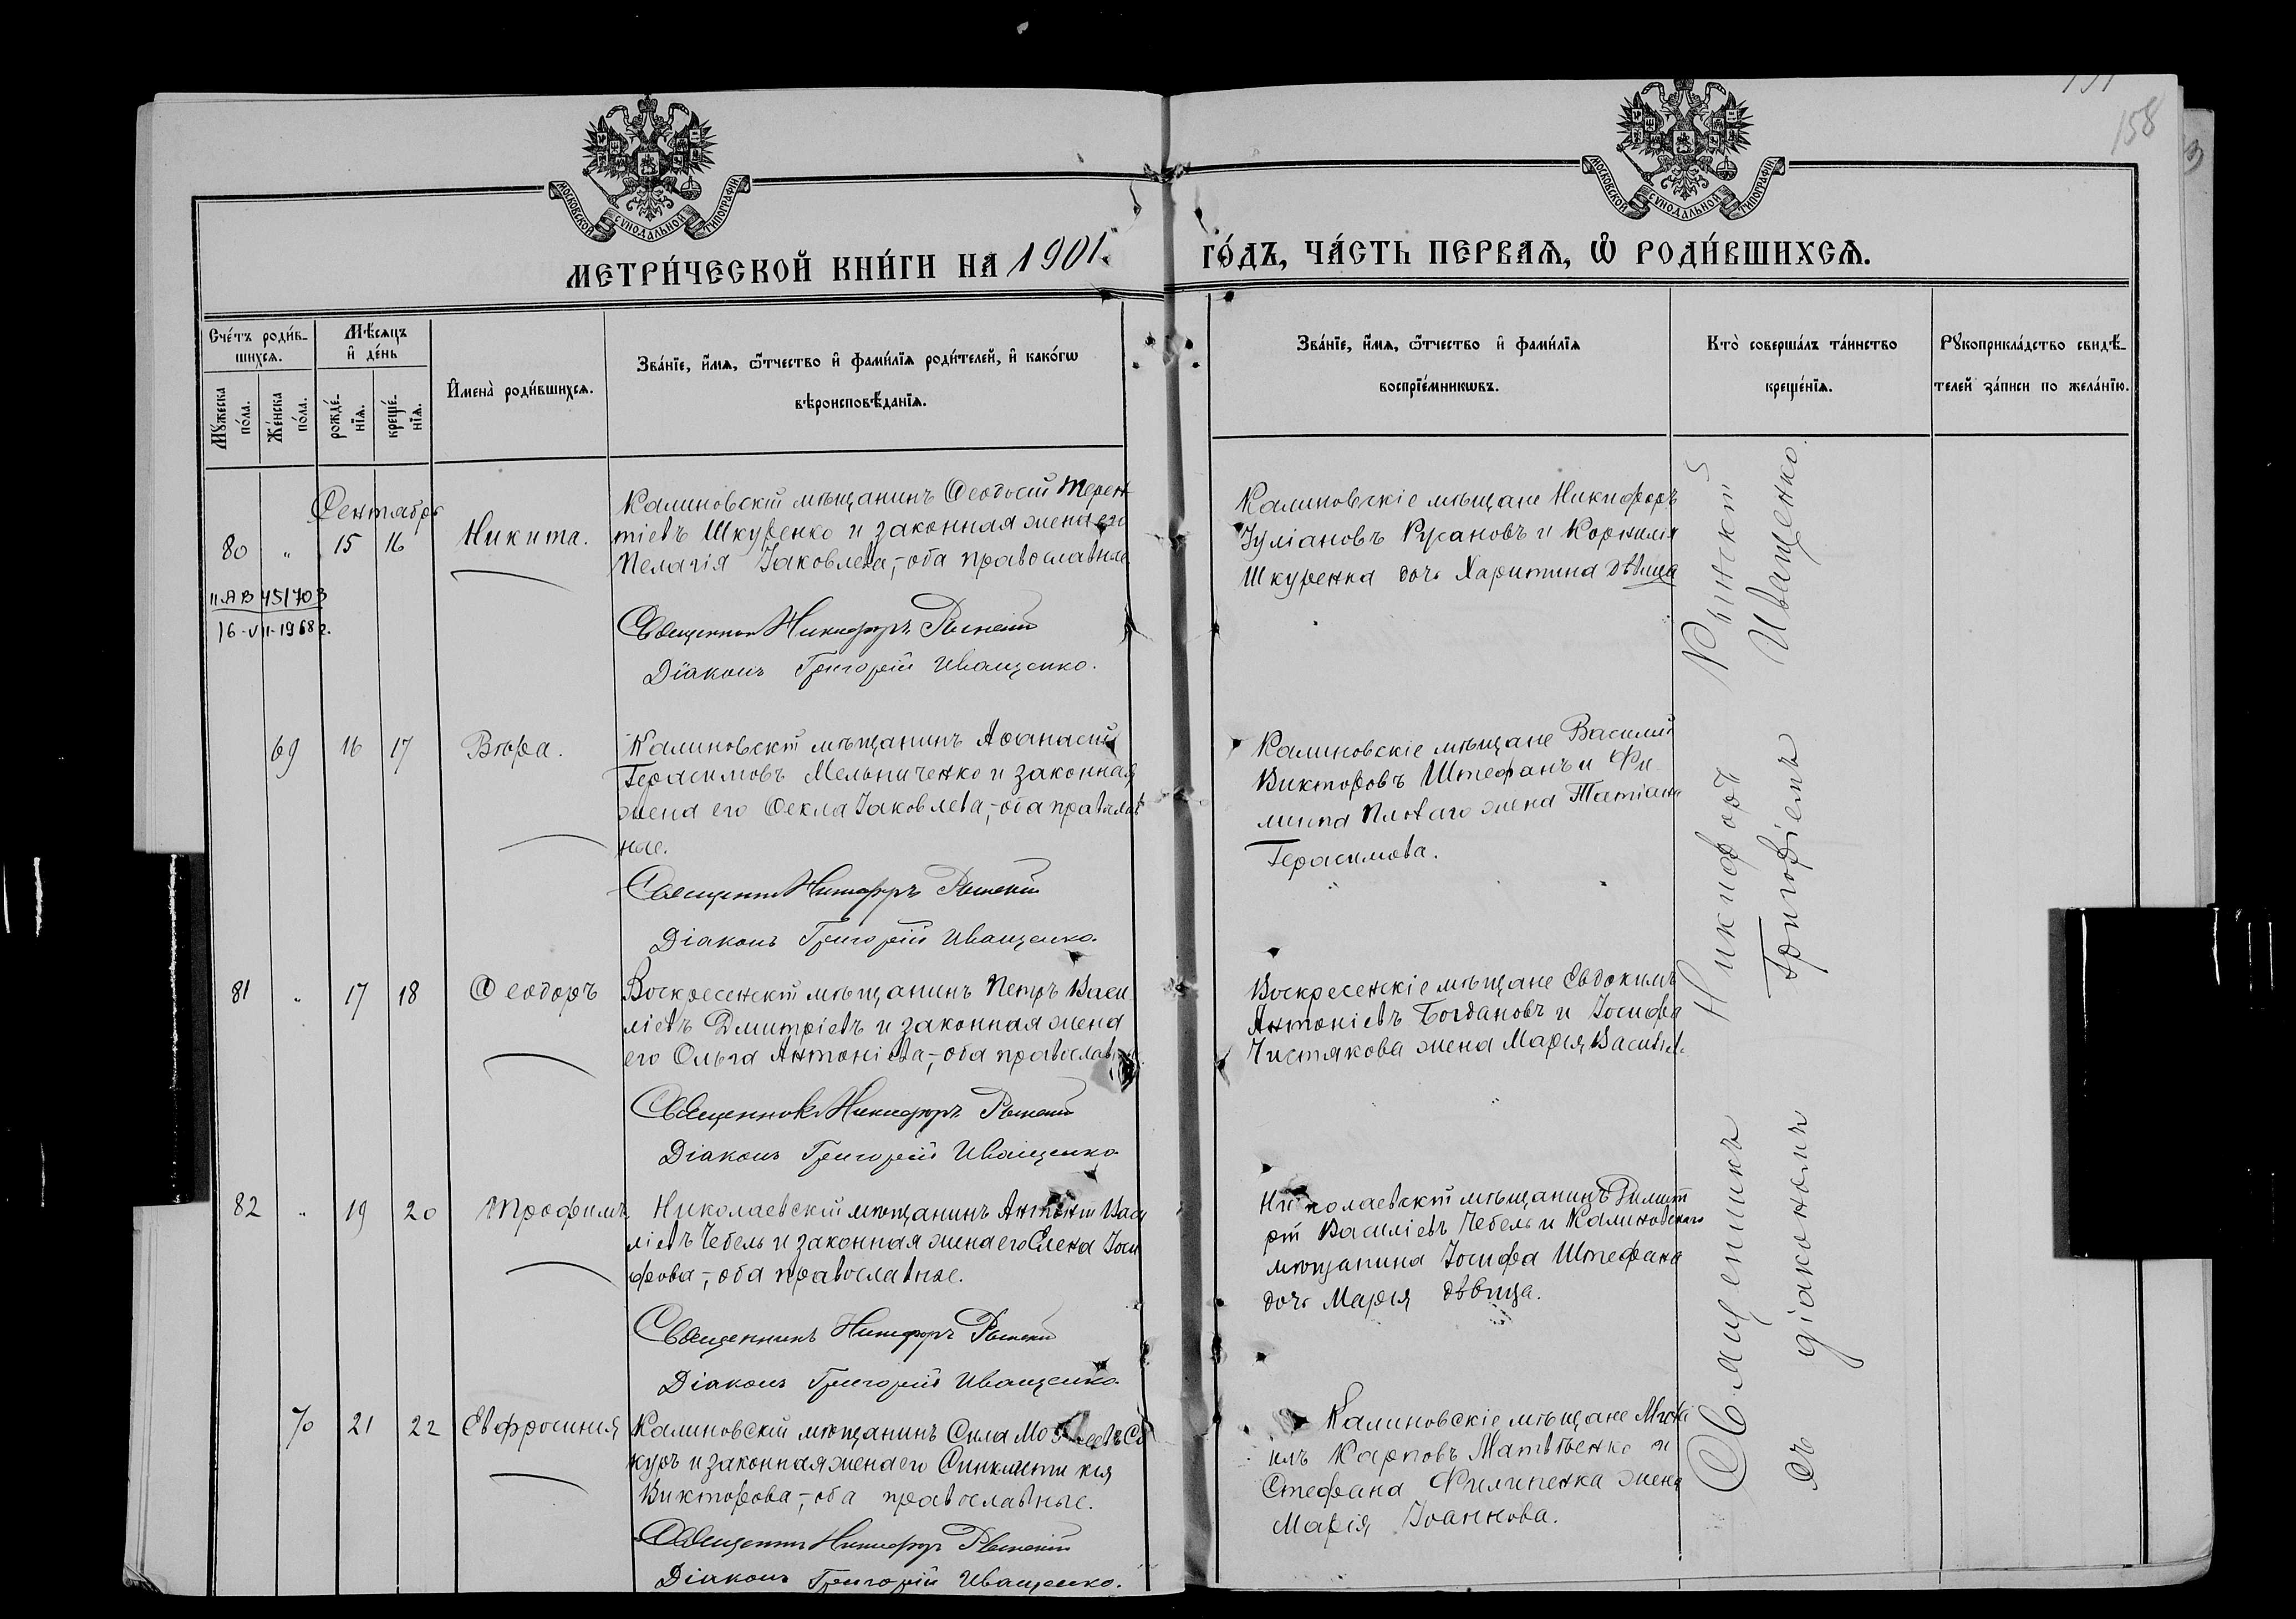 158
МОСКОВСКОЙ СѴНОДАЛЬНОЙ ТИПОГРАФІИ
МОСКОВСКОЙ СѴНОДАЛЬНОЙ ТИПОГРАФІИ
МЕТРИ́ЧЕСКОЙ КНИ́ГИ НА 1901.
ГО́ДЪ, ЧА́СТЬ ПЕРВАѦ, Ѽ РОДИ́ВШИХСѦ.
Сче́тъ роди́в-
шихсѧ.
Мꙋ́жеска
по́ла.
Же́нска
по́ла.
Мѣ́сѧцъ
и҆ де́нь
рожде́-
нїѧ.
креще́-
нїѧ.
И҆мена̀ роди́вшихсѧ.
Зва́нїе, и҆́мѧ, ѻ҆́тчество и҆ фами́лїѧ роди́телей, и҆ како́гѡ
вѣроисповѣ́данїѧ.
Зва́нїе, и҆́мѧ, ѻ҆́тчество и҆ фами́лїѧ
воспрїе́мникѡвъ.
Кто̀ соверша́лъ та́инство
креще́нїѧ.
Рꙋкоприкла́дство свидѣ́-
телей за́писи по жела́нїю.
Сентябрь
80 " 15 16 Никита.
Калиновскій мѣщанинъ Ѳеодосій Терен-
тіевъ Шкуренко и законная жена его
Пелагія Іаковлева,- оба православные
II АВ 451703
16-VII-1968 г.
Священникъ Никифоръ Рынскій
Діаконъ Григорій Иващенко.
Калиновскіе мѣщане Никифоръ
Іуліановъ Русановъ и Корнилія
Шкуренка дочь Харитина дѣвица
69 16 17 Вѣра.
Калиновскій мѣщанинъ Аѳанасій
Герасимовъ Мельниченко и законная
жена его Ѳекла Іаковлева,- оба православ
ные.
Священникъ Никифоръ Рынскій
Діаконъ Григорій Иващенко.
Калиновскіе мѣщане Василій
Викторовъ Штефанъ и Фи-
липпа жена Татіана
Герасимова.
81 " 17 18 Ѳеодоръ
Воскресенскій мѣщанинъ Петръ Васи-
ліевъ Дмитріевъ и законная жена
его Ольга Антоніева,- оба православн
Священникъ Никифоръ Рынскій
Діаконъ Григорій Иващенко
Воскресенскіе мѣщане Евдокимъ
Антоніевъ Богдановъ и Іосифа
Чистякова жена Марія Васильев.
82 " 19 20 Трофимъ
Николаевскій мѣщанинъ Антоній Васи
ліевъ Чебель и законная жена его Елена Іоси
фова,- оба православные.
Священникъ Никифоръ Рынскій
Діаконъ Григорій Иващенко
Николаевскій мѣщанинъ Димит
рій Василіевъ Чебель и Калиновскаго
мѣщанина Іосифа Штефана
дочь Марія дѣвица.
70 21 22 Евфросинія
Калиновскій мѣщанинъ Сила
и законная жена его Синклити кія
Викторова,- оба православные.
Священникъ Никифоръ Рынскій
Діаконъ Григорій Иващенко.
Калиновскіе мѣщане Миха
илъ Карповъ Матвѣенко и
Стефана Филипенка жена
Марія Іоаннова.
Священникъ Никифоръ Рынскій
съ діакономъ Григоріемъ Иващенко.